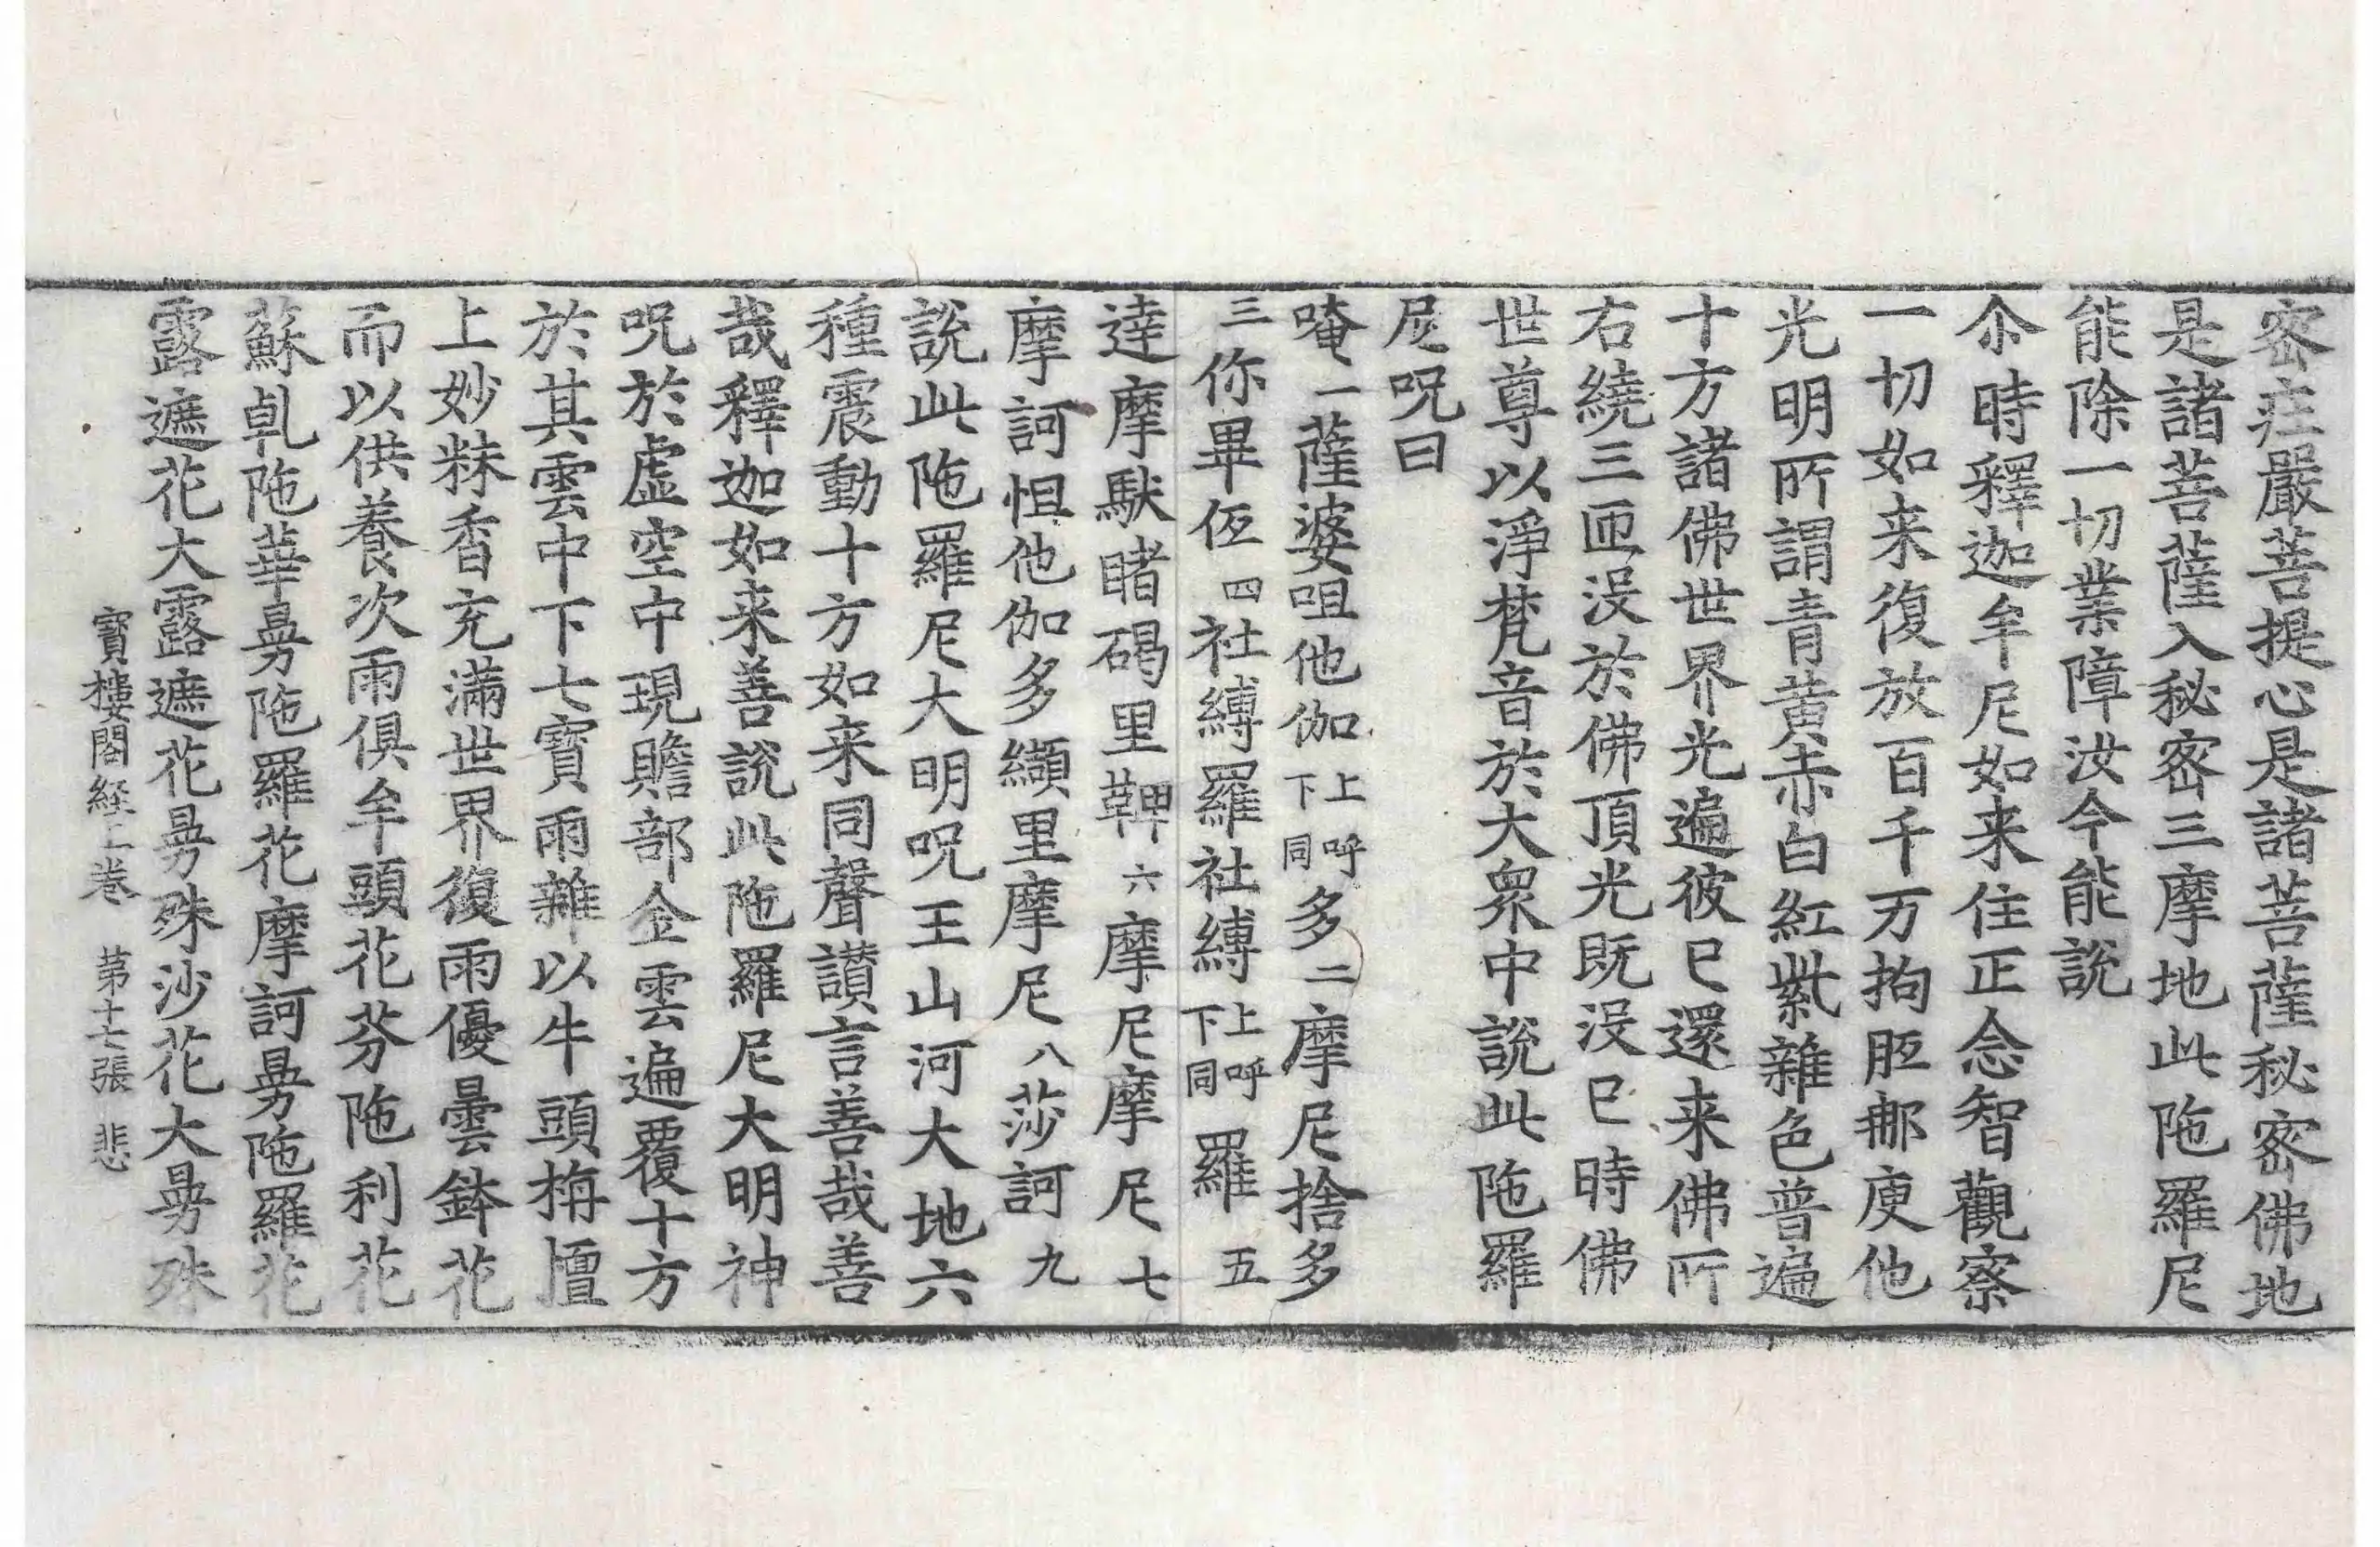 密疰嚴菩提心是諸菩薩秘密佛地
是諸菩薩入秘密三摩地此陁羅尼
能除一切業障汝今能說
尒時釋迦牟尼如来住正念智觀察
一切如来復放百千万拘胝郍庾他
光明所謂青黄赤白紅紫雜色普遍
十方諸佛世界光遍彼已還来佛所
右繞三匝没於佛頂光既没已時佛
世尊以淨梵音於大衆中說此陁羅
尼呪曰
唵一薩婆咀他伽上呼下同多二摩尼捨多
三你畢𠇾四社縛羅社縛上呼下同羅五
達摩馱睹碣里鞞六摩尼摩尼七
摩訶怛他伽多纈里摩尼八莎訶九
說此陁羅尼大明呪王山河大地六
種震動十方如来同聲讃言善哉善
哉釋迦如来善說此陁羅尼大明神
呪於虚空中現贍部金雲遍覆十方
於其雲中下七寶雨雜以牛頭栴檀
上妙粖香充滿世界復雨優曇鉢花
而以供養次雨俱牟頭花芬陁利花
蘇乹陁華曼陁羅花摩訶曼陁羅花
露遮花大露遮花曼殊沙花大曼殊
寶樓閣経上卷　第十七張　悲